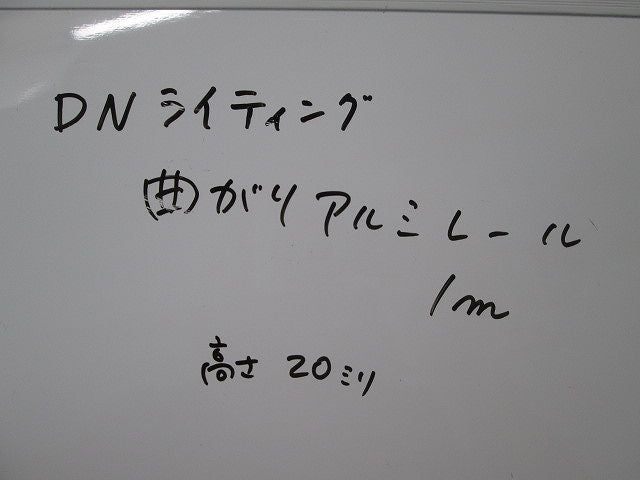 DNライティング
曲がりアルミレール
1m
高さ 20ミリ